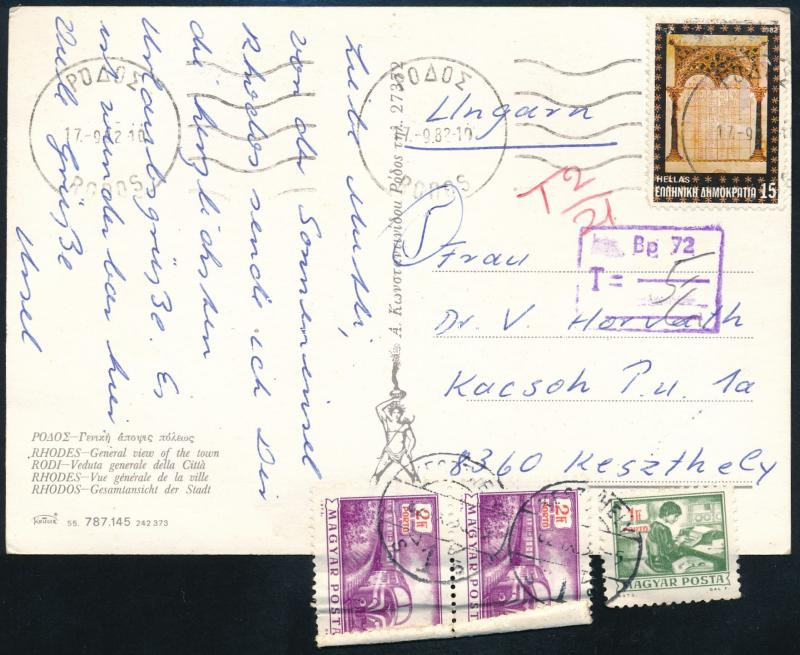 Liebe Mutti,
von der Sonneninsel
Rhodos sende ich Dir
die herzlichsten
Urlaubsgrüße. Es
ist wunderbar hier
Viele Grüße
Ungarn
Frau
Dr. V. Horvath
Kacsoh P. u. 1a
8360 Keszthely
T 2/21
Bp 72
T =
ΡΟΔΟΣ
17.-9.82-10
RODOS
ΡΟΔΟΣ
17.-9.82-10
RODOS
17.-9
1982
HELLAS
ΕΛΛΗΝΙΚΗ ΔΗΜΟΚΡΑΤΙΑ 15
Α. Κωνσταντινίδου Ρόδος τηλ. 27352
ΡΟΔΟΣ—Γενικὴ ἄποψις πόλεως
RHODES—General view of the town
RODI—Veduta generale della Città
RHODES—Vue générale de la ville
RHODOS—Gesamtansicht der Stadt
55. 787.145 242 373
2 Ft
PORTO
MAGYAR POSTA
2 Ft
PORTO
MAGYAR POSTA
1 Ft
PORTO
MAGYAR POSTA